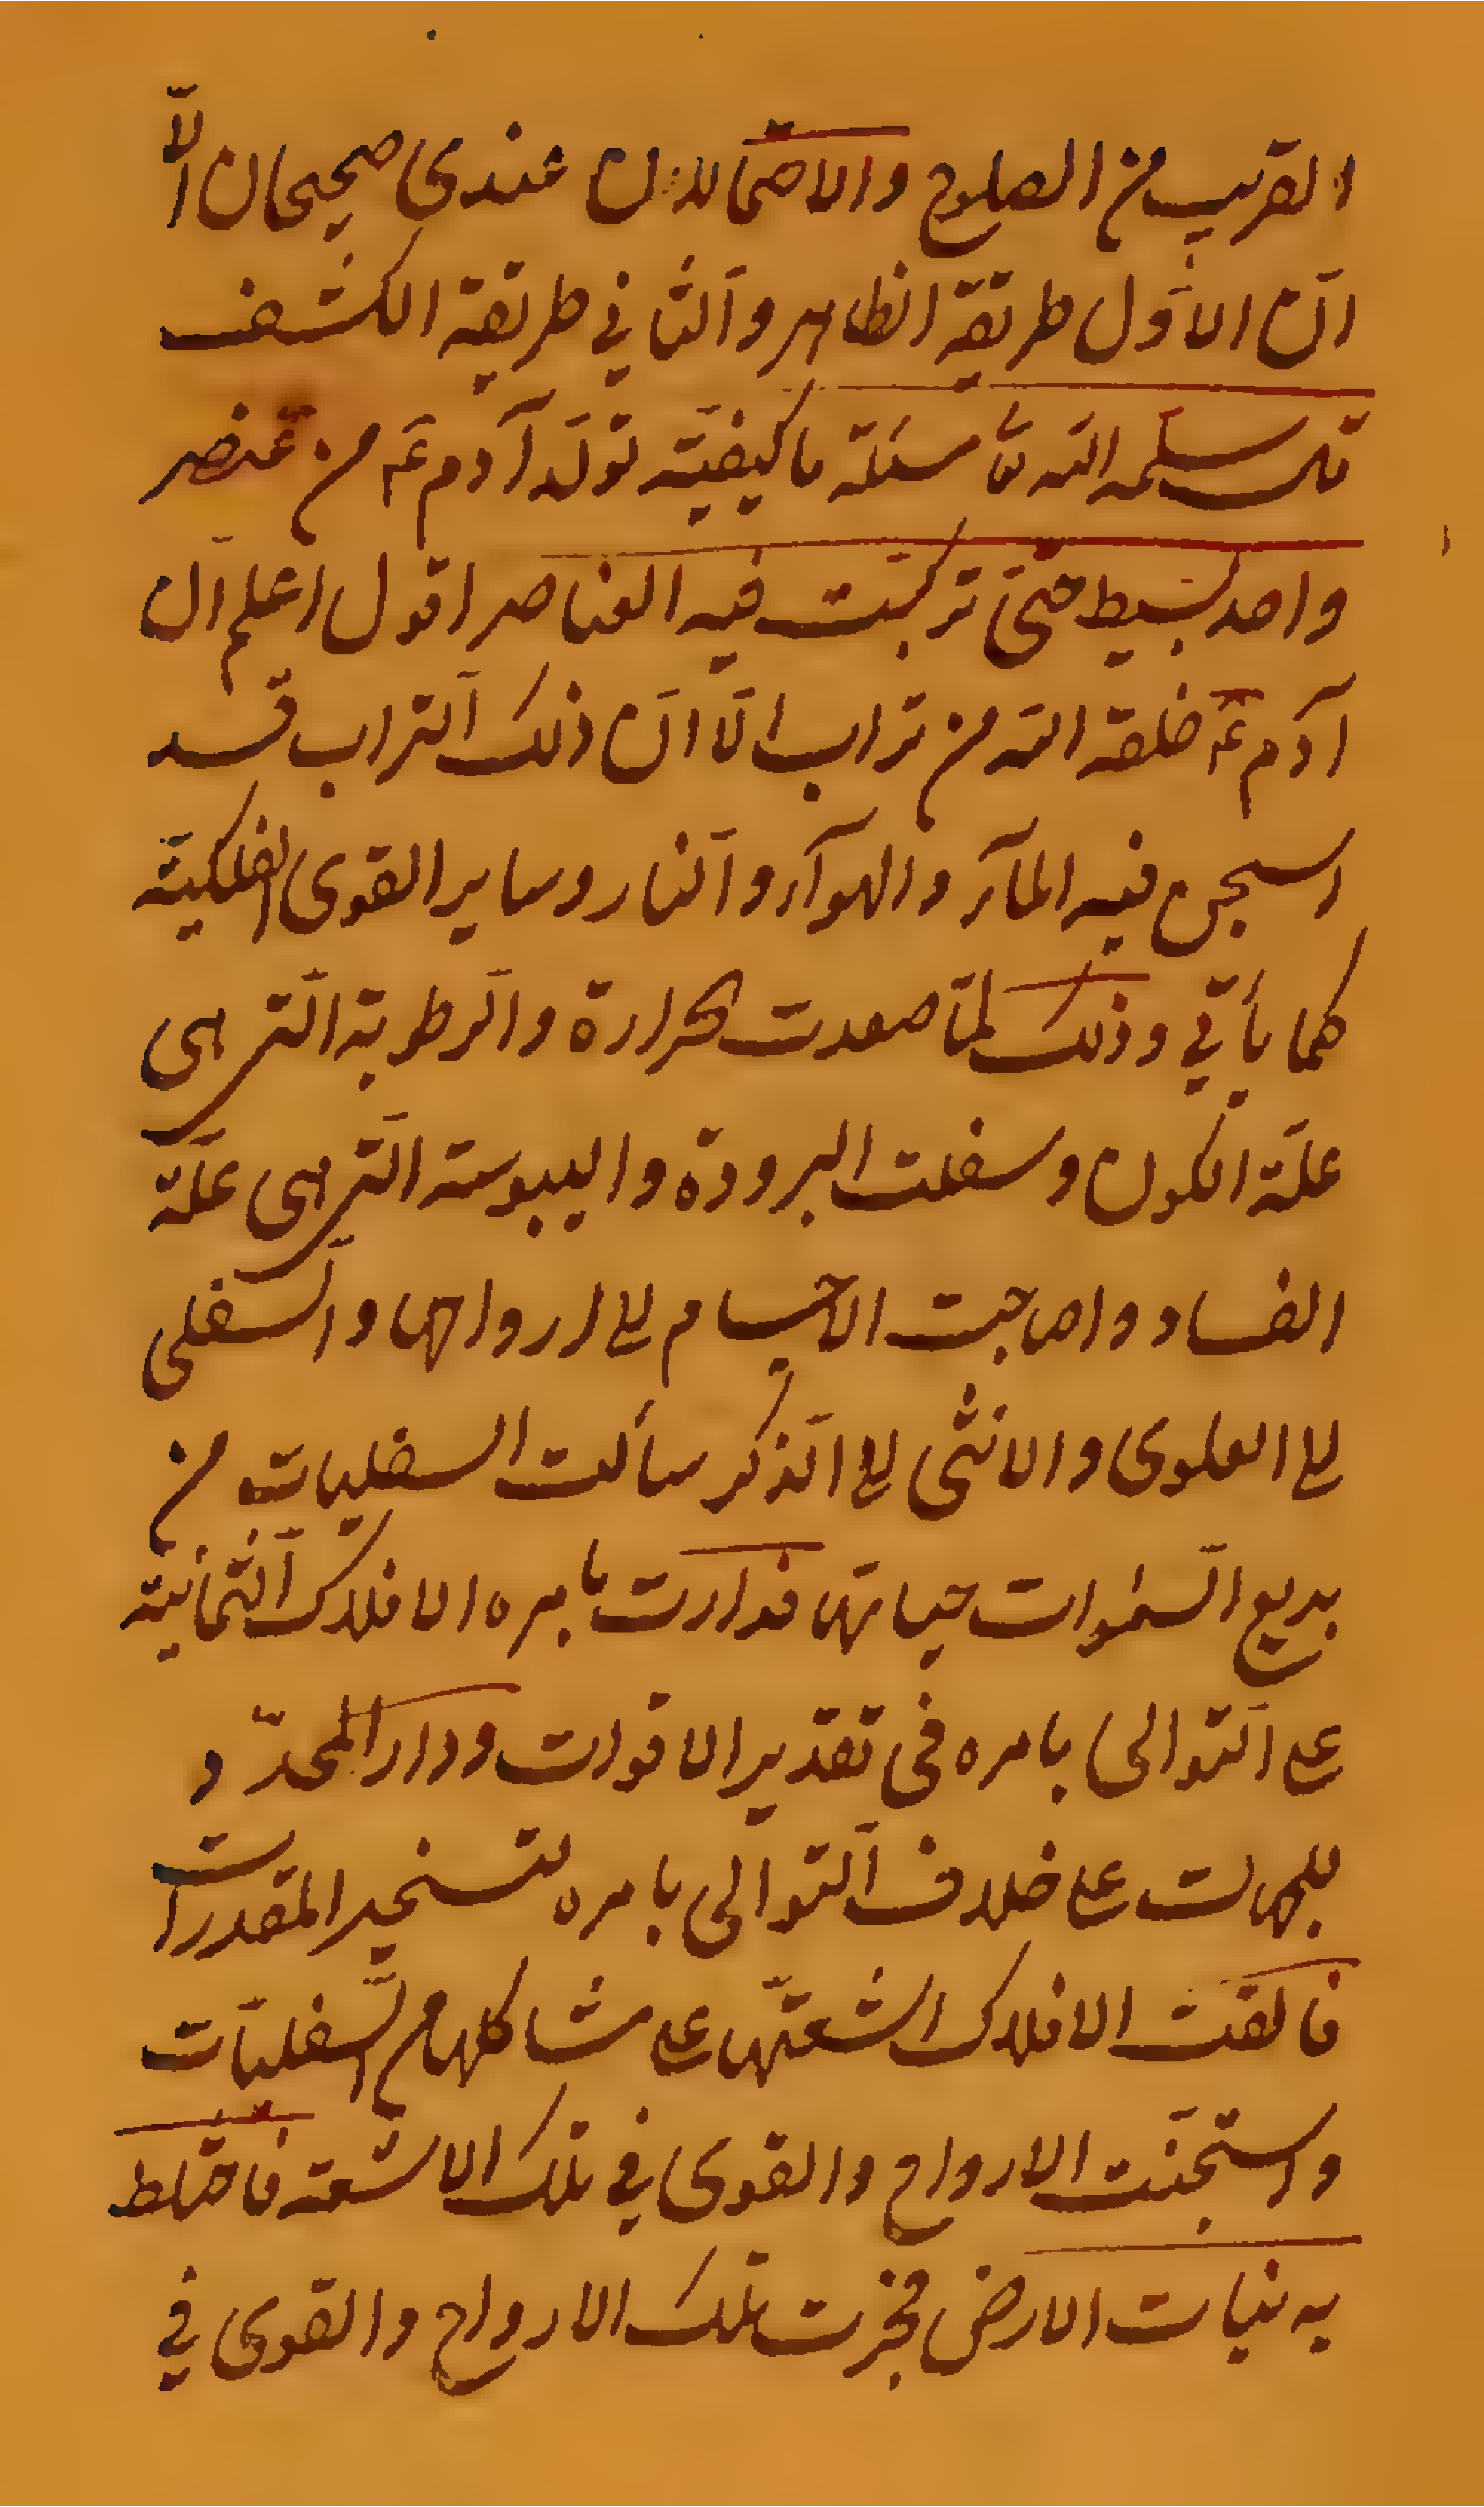 القريب من الصلوح والاحتمالان عندى صحيحان الّا
انّ الاوّل طريقة الظاهر والثاني طريقة الكشف
قال سلمه الله تعٓ مسئلة ما كيفيّة تولّد آدم عٓم من عنصر
واحد بسيط حتىّ تركبّت فيه العناصر اقول اعلم انّ
آدم عٓم خلقه الله من تراب الّا انّ ذلك التراب قد
استجن فيه المآء والهوآء والنار وساير القوى الفلكيّة
كما يأتي وذلك لمّا صعدت الحرارة والرطوبة التى هى
علّة الكون وسفلت البرودة واليبوسة التى هى علّة
الفساد واحتاجت الاجسام الى ارواحها والسّفلى
الى العلوى والانثى الى الذكر سألت السفليات من
بديع السّموات حياتها فدارت بامره الافلاك الثمانية
على التّوالى بامره فى تقدير الاقوات ودار المحدّد
للجهات على خلاف التّوالى بامره لتسخير المقدرات
فالقت الافلاك اشعتّها على مشاكلها من السّفليات
واستجنّت الارواح والقوى في تلك الاشعة فاختلط
به نبات الارض فجرت تلك الارواح والقوى في